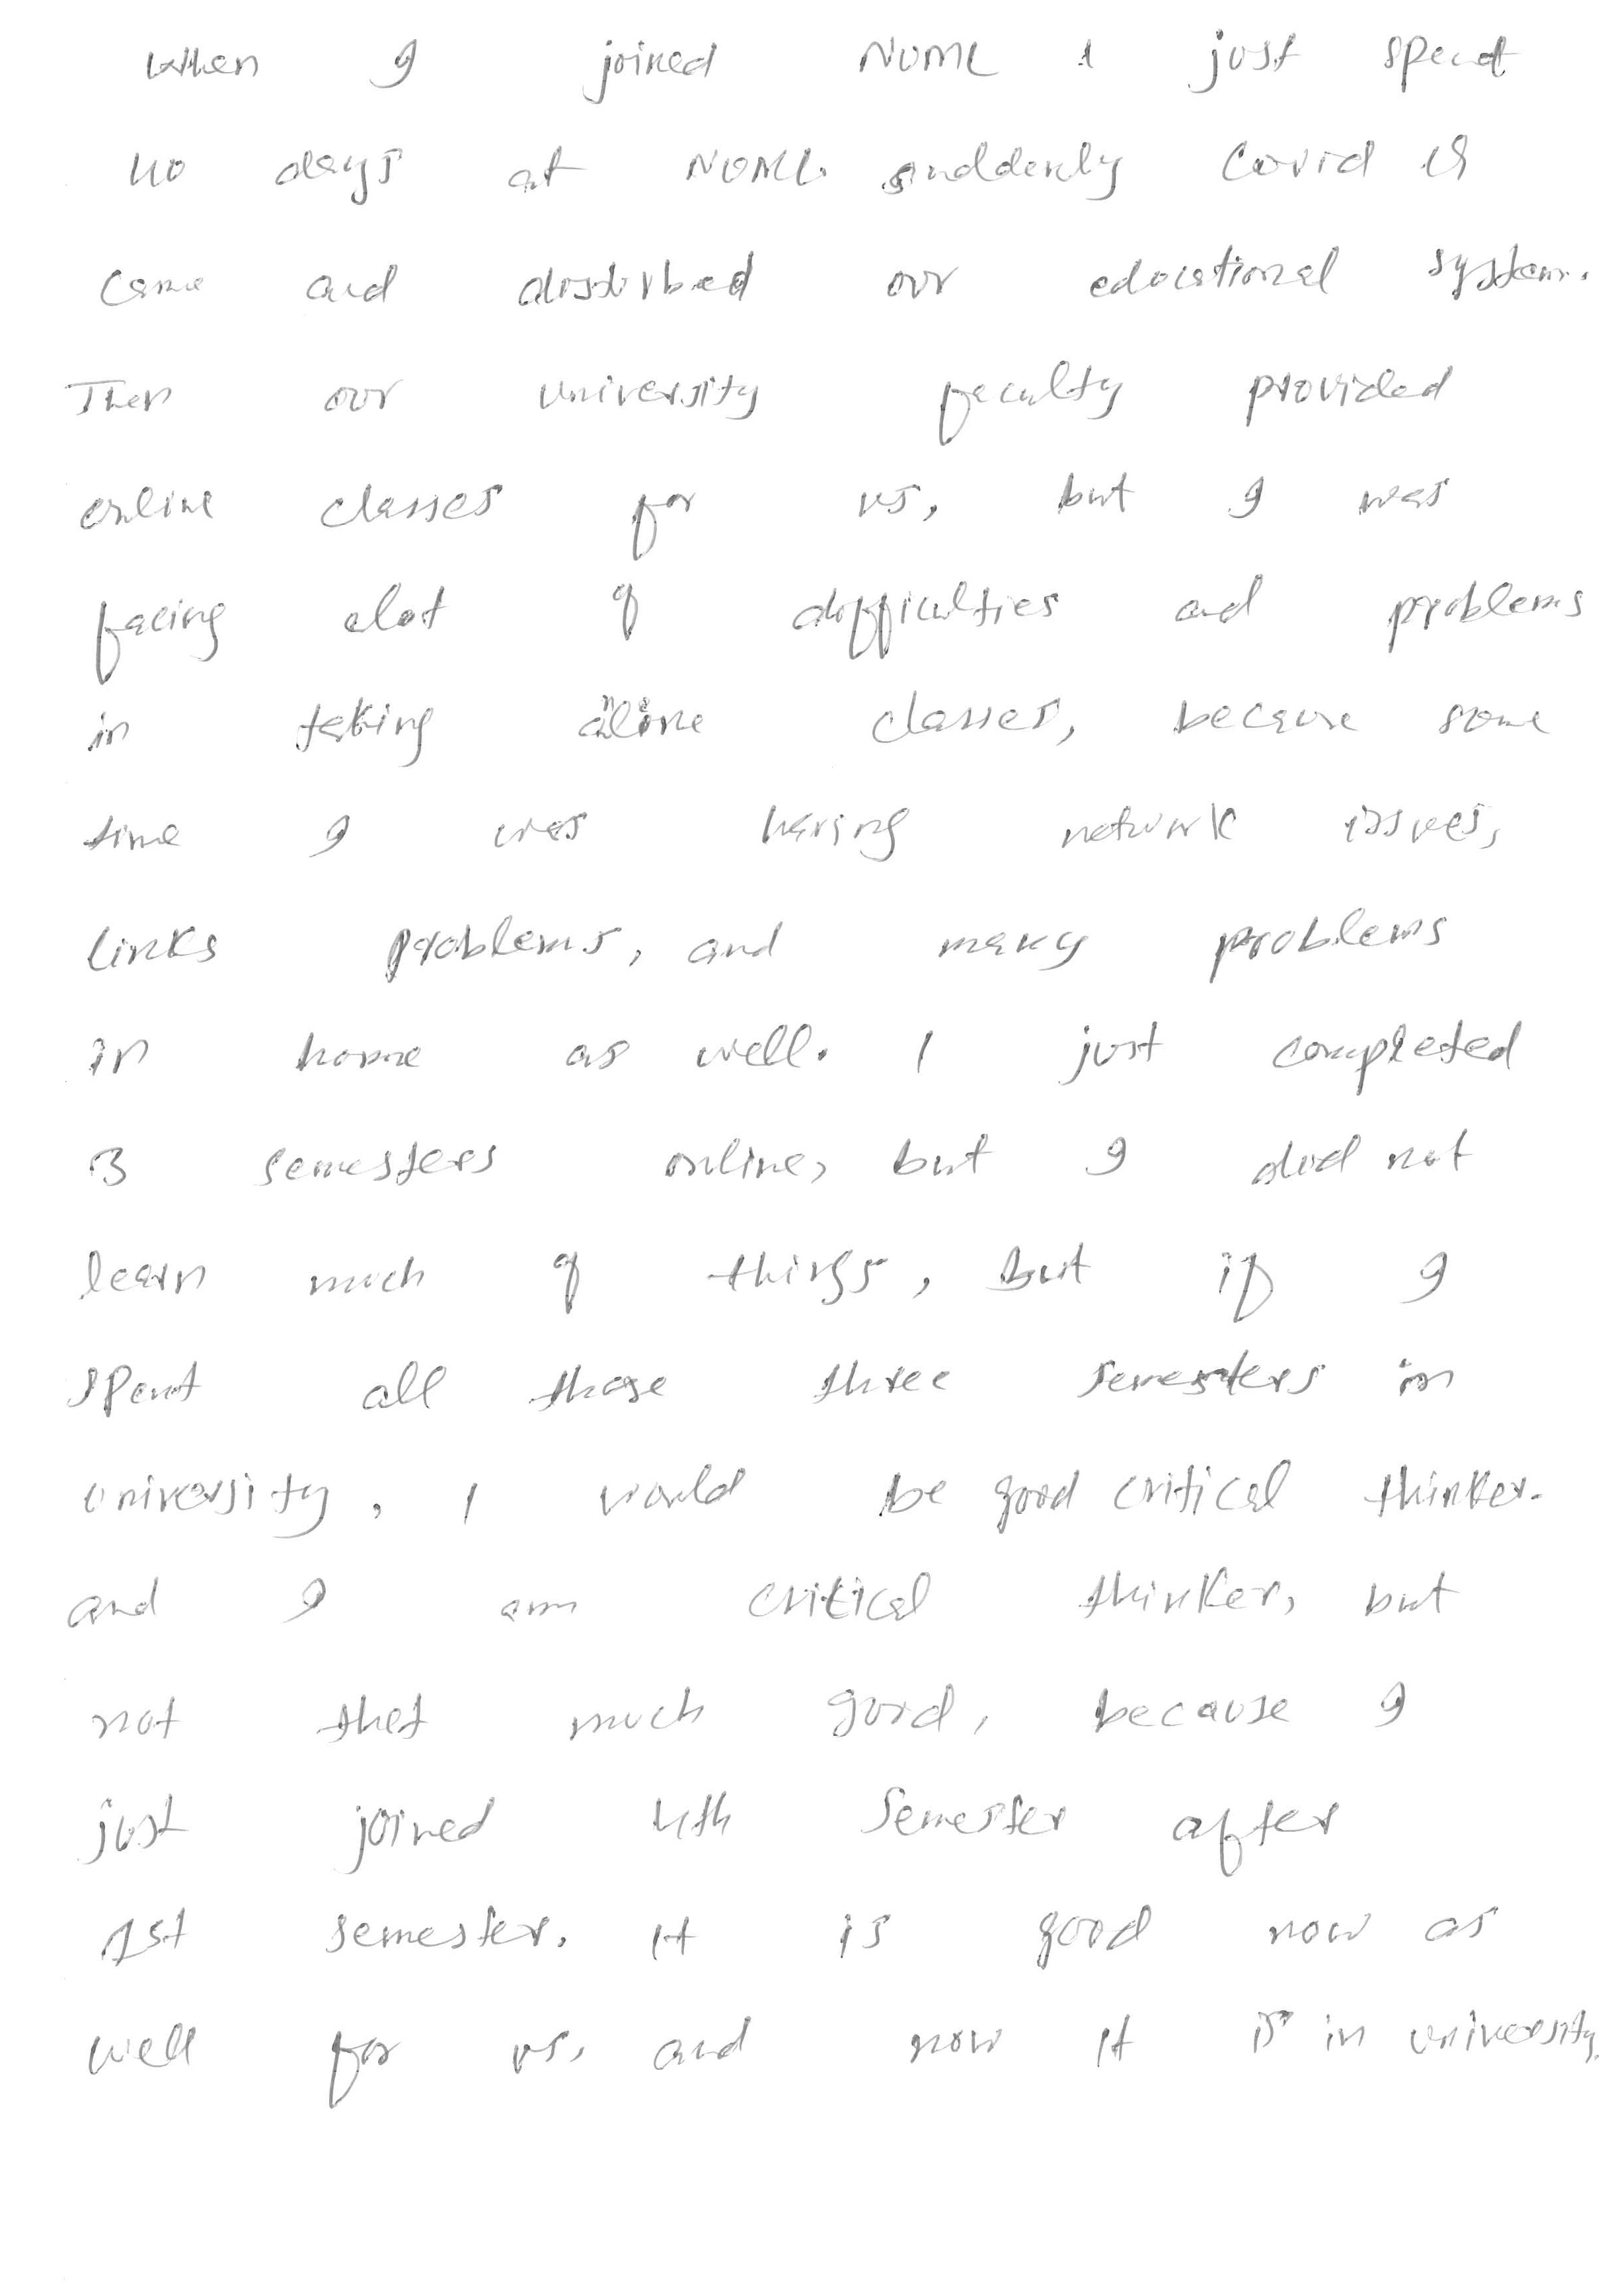 When I joined NUML I just spent
40 days at NUML. suddenly Covid 19
came and disturbed our educational system.
Then our university faculty provided
online classes for us, but I was
facing alot of difficulties and problems
in taking online classes, because some
time I was having network issues,
links problems, and many problems
in home as well. I just completed
3 semesters online, but I did not
learn much of things, But if I
spent all those three semesters in
university, I would be good critical thinker.
and I am critical thinker, but
not that much good, because I
just joined 4th Semester after
1st semester. It is good now as
well for us, and now it is in university.